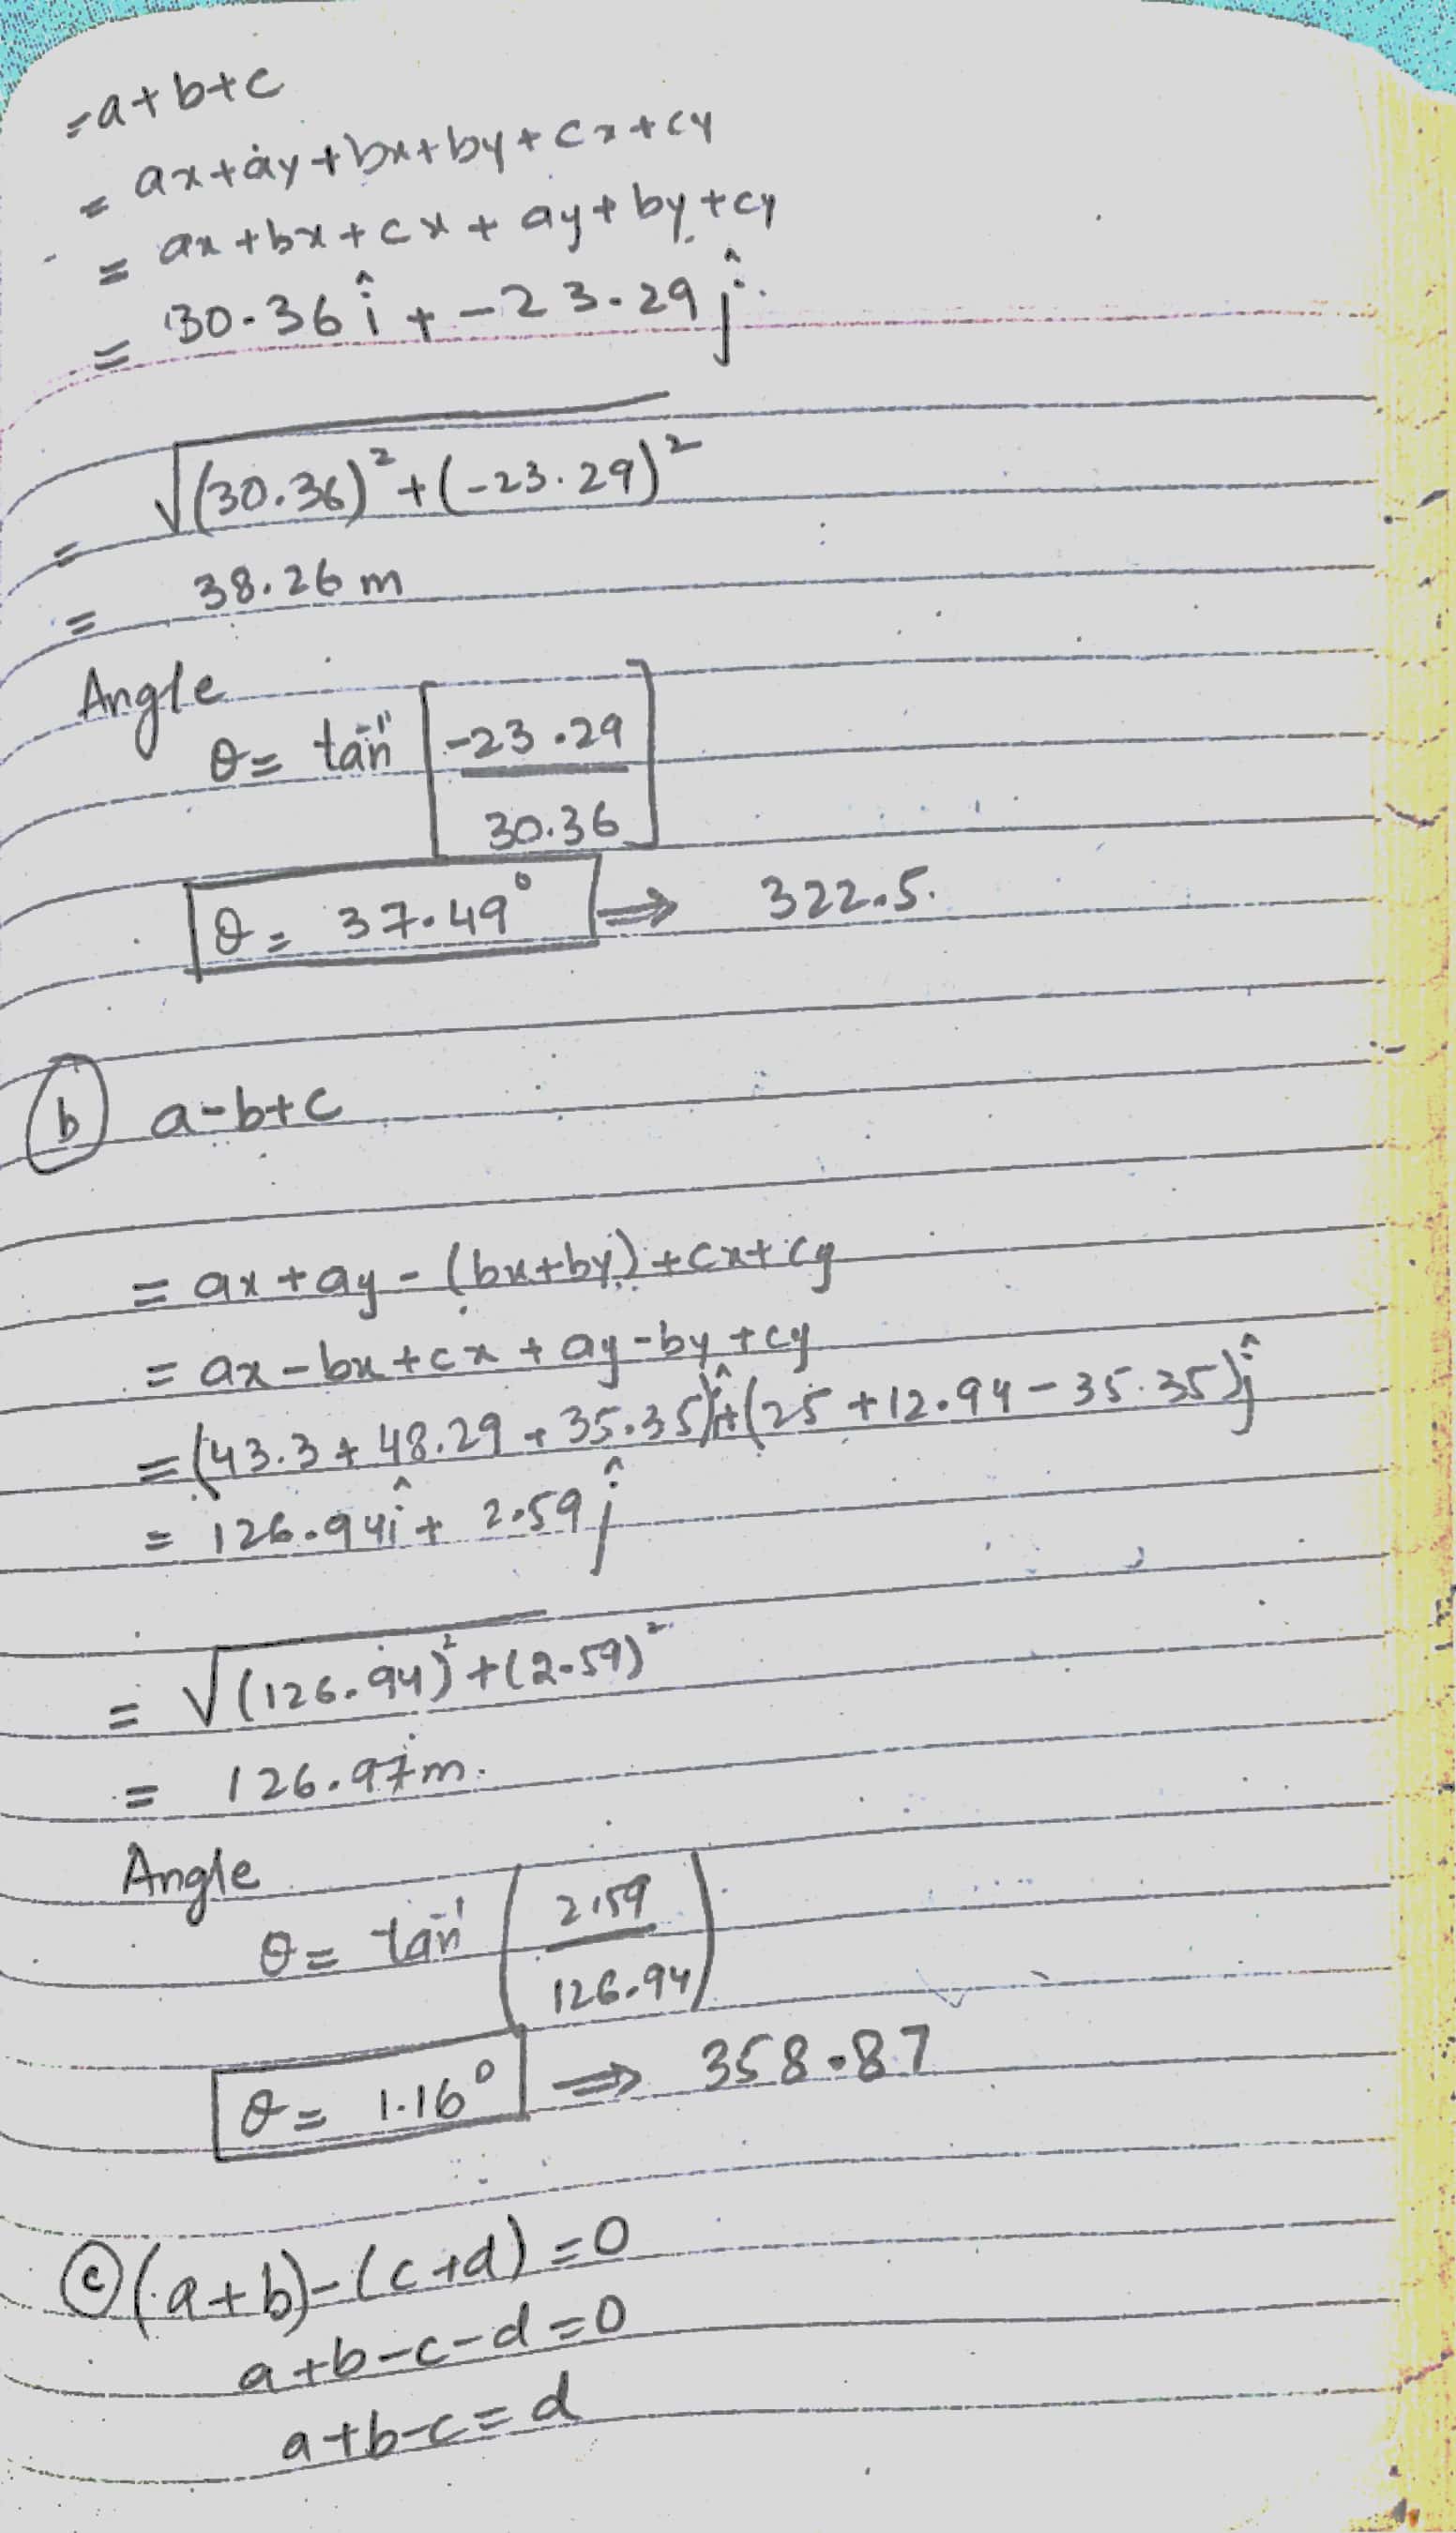 = a+b+c
= ax+ay+bx+by+cx+cy
= ax+bx+cx+ay+by+cy
= 30.36 î + -23.29 ĵ
= √(30.36)²+(-23.29)²
= 38.26 m
Angle
θ = tan⁻¹ [-23.29 / 30.36]
θ = 37.49° ⇒ 322.5.
(b) a-b+c
= ax+ay-(bx+by)+cx+cy
= ax-bx+cx+ay-by+cy
= (43.3+48.29+35.35)î+(25+12.94-35.35)ĵ
= 126.94î + 2.59ĵ
= √(126.94)²+(2.59)²
= 126.97m.
Angle
θ = tan⁻¹ (2.59 / 126.94)
θ = 1.16° ⇒ 358.87
(c) (a+b)-(c+d)=0
a+b-c-d=0
a+b-c=d